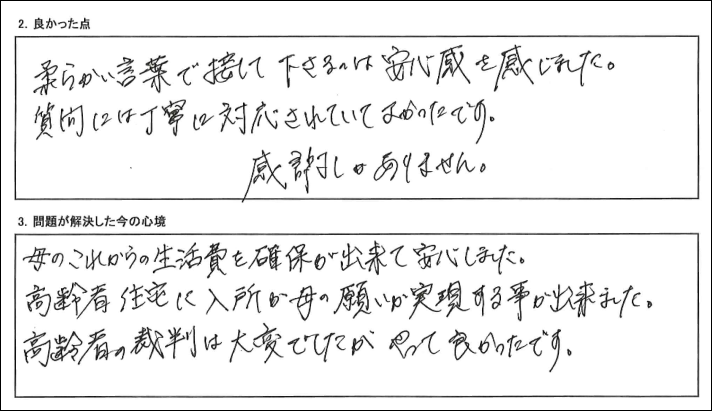 2. 良かった点
柔らかい言葉で接して下さるのは安心感を感じました。
質問には丁寧に対応されていてよかったです。
感謝しかありません。
3. 問題が解決した今の心境
母のこれからの生活費を確保が出来て安心しました。
高齢者住宅に入所が母の願いが実現する事が出来ました。
高齢者の裁判は大変でしたが やって良かったです。